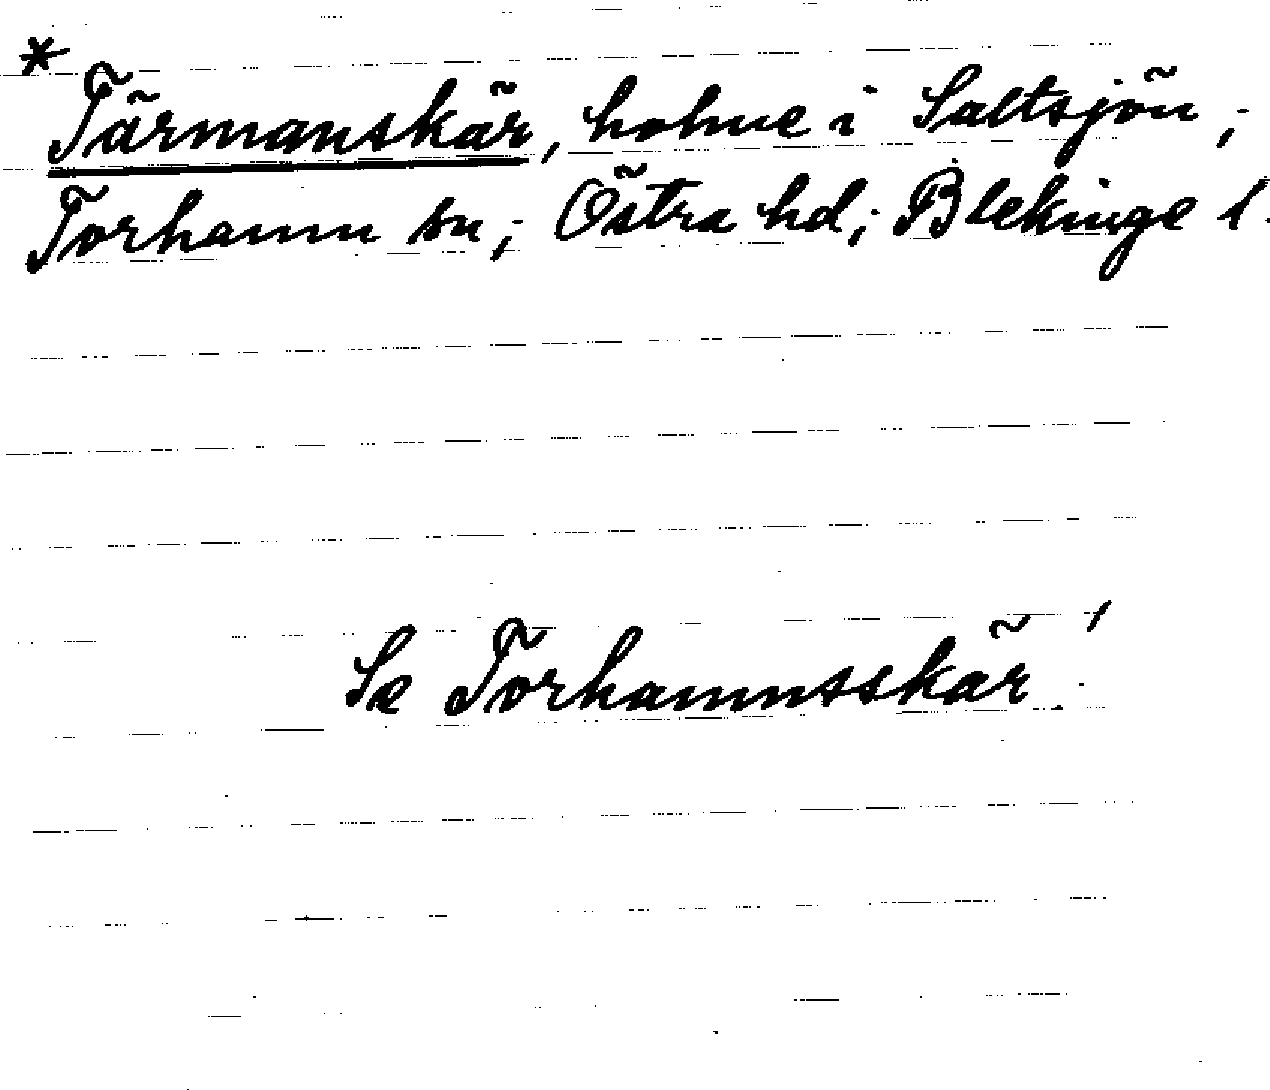 * Tärmanskär, holme i Saltsjön,
Torhamn sn, Östra hd, Blekinge l.
Se Torhamnsskär!